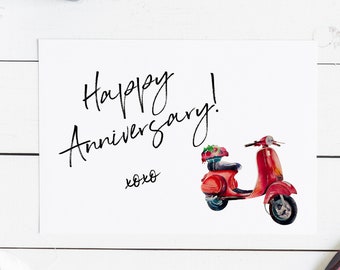 Happy
Anniversary!
xoxo